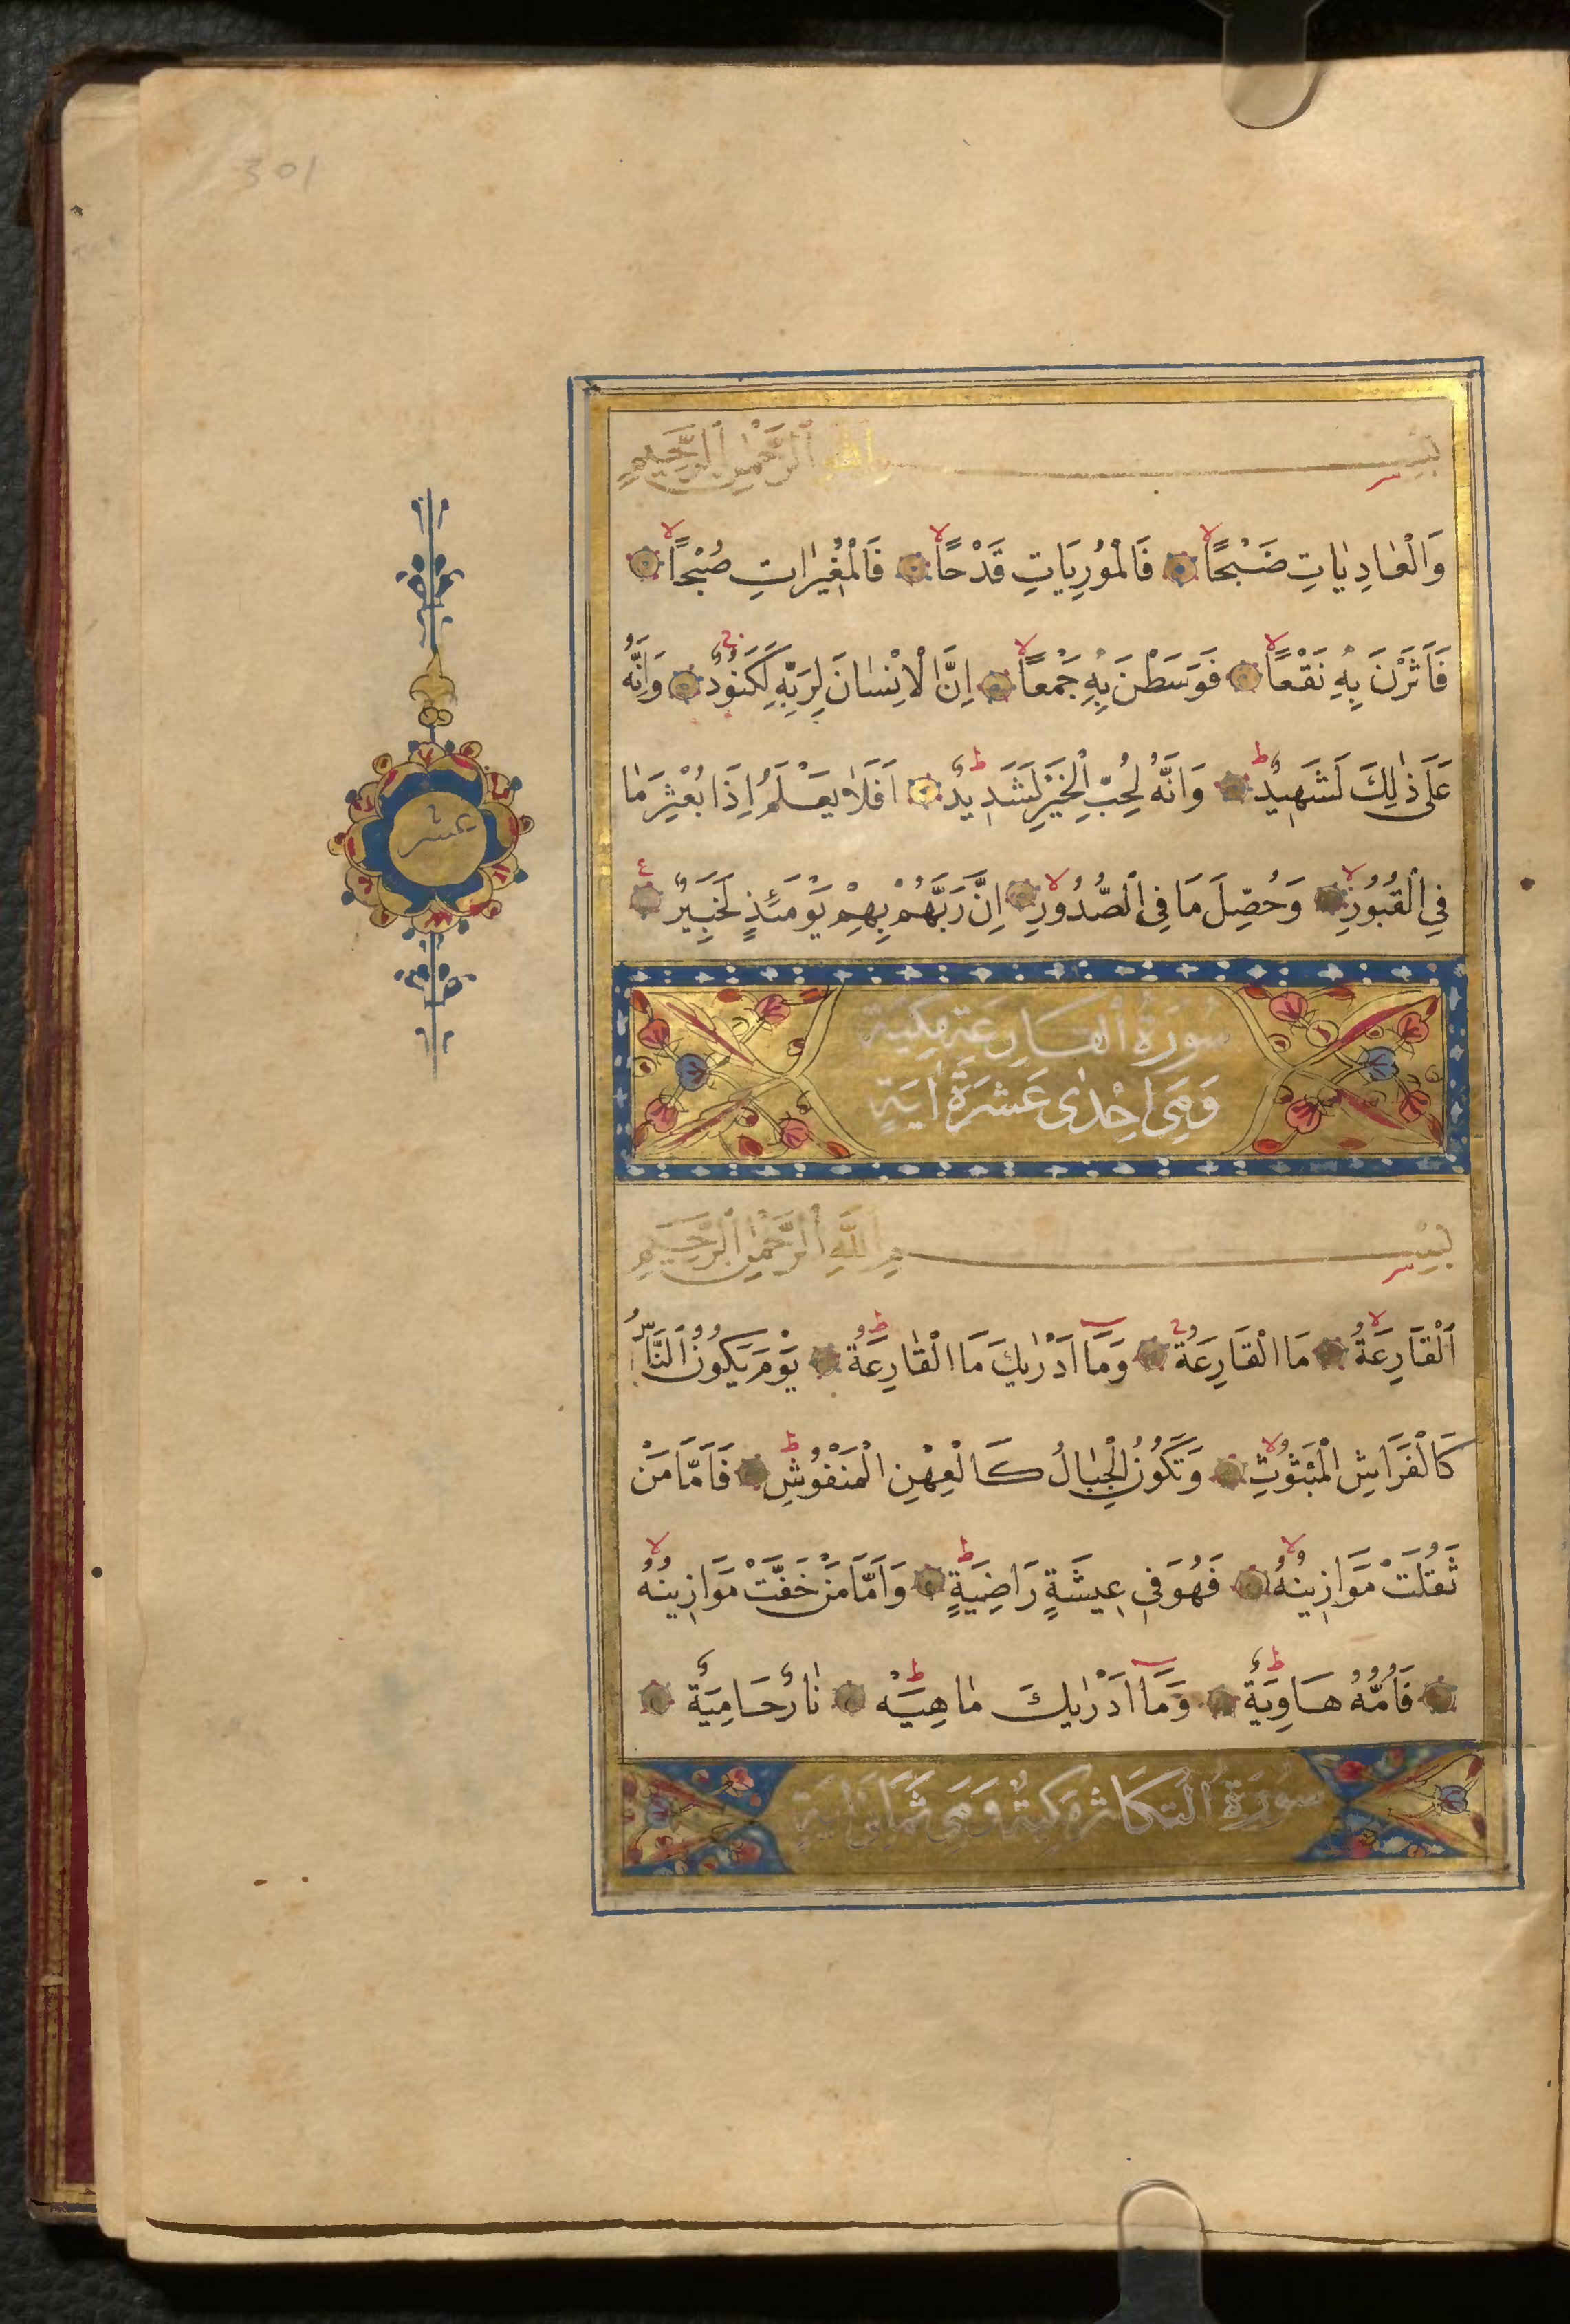 301
بِسْمِ اللّٰهِ الرَّحْمٰنِ الرَّحِيمِ
وَالْعَادِيَاتِ ضَبْحًا فَالْمُورِيَاتِ قَدْحًا فَالْمُغِيرَاتِ صُبْحًا
فَاَثَرْنَ بِهِ نَقْعًا فَوَسَطْنَ بِهِ جَمْعًا اِنَّ الْاِنْسَانَ لِرَبِّهِ لَكَنُودٌ وَاِنَّهُ
عَلَى ذٰلِكَ لَشَهِيدٌ وَاِنَّهُ لِحُبِّ الْخَيْرِ لَشَدِيدٌ اَفَلَا يَعْلَمُ اِذَا بُعْثِرَ مَا
فِي الْقُبُورِ وَحُصِّلَ مَا فِي الصُّدُورِ اِنَّ رَبَّهُمْ بِهِمْ يَوْمَئِذٍ لَخَبِيرٌ
عشر
سُورَةُ الْقَارِعَةِ مَكِّيَّةٌ
وَهِيَ اِحْدٰى عَشَرَةَ اٰيَةٍ
بِسْمِ اللّٰهِ الرَّحْمٰنِ الرَّحِيمِ
اَلْقَارِعَةُ مَا الْقَارِعَةُ وَمَآ اَدْرٰيكَ مَا الْقَارِعَةُ يَوْمَ يَكُونُ النَّاسُ
كَالْفَرَاشِ الْمَبْثُوثِ وَتَكُونُ الْجِبَالُ كَالْعِهْنِ الْمَنْفُوشِ فَاَمَّا مَنْ
ثَقُلَتْ مَوَازِينُهُ فَهُوَ فِي عِيشَةٍ رَاضِيَةٍ وَاَمَّا مَنْ خَفَّتْ مَوَازِينُهُ
فَاُمُّهُ هَاوِيَةٌ وَمَآ اَدْرٰيكَ مَا هِيَهْ نَارٌ حَامِيَةٌ
سُورَةُ التَّكَاثُرِ مَكِّيَّةٌ وَهِيَ ثَمَانِيَ اٰيَةٍ